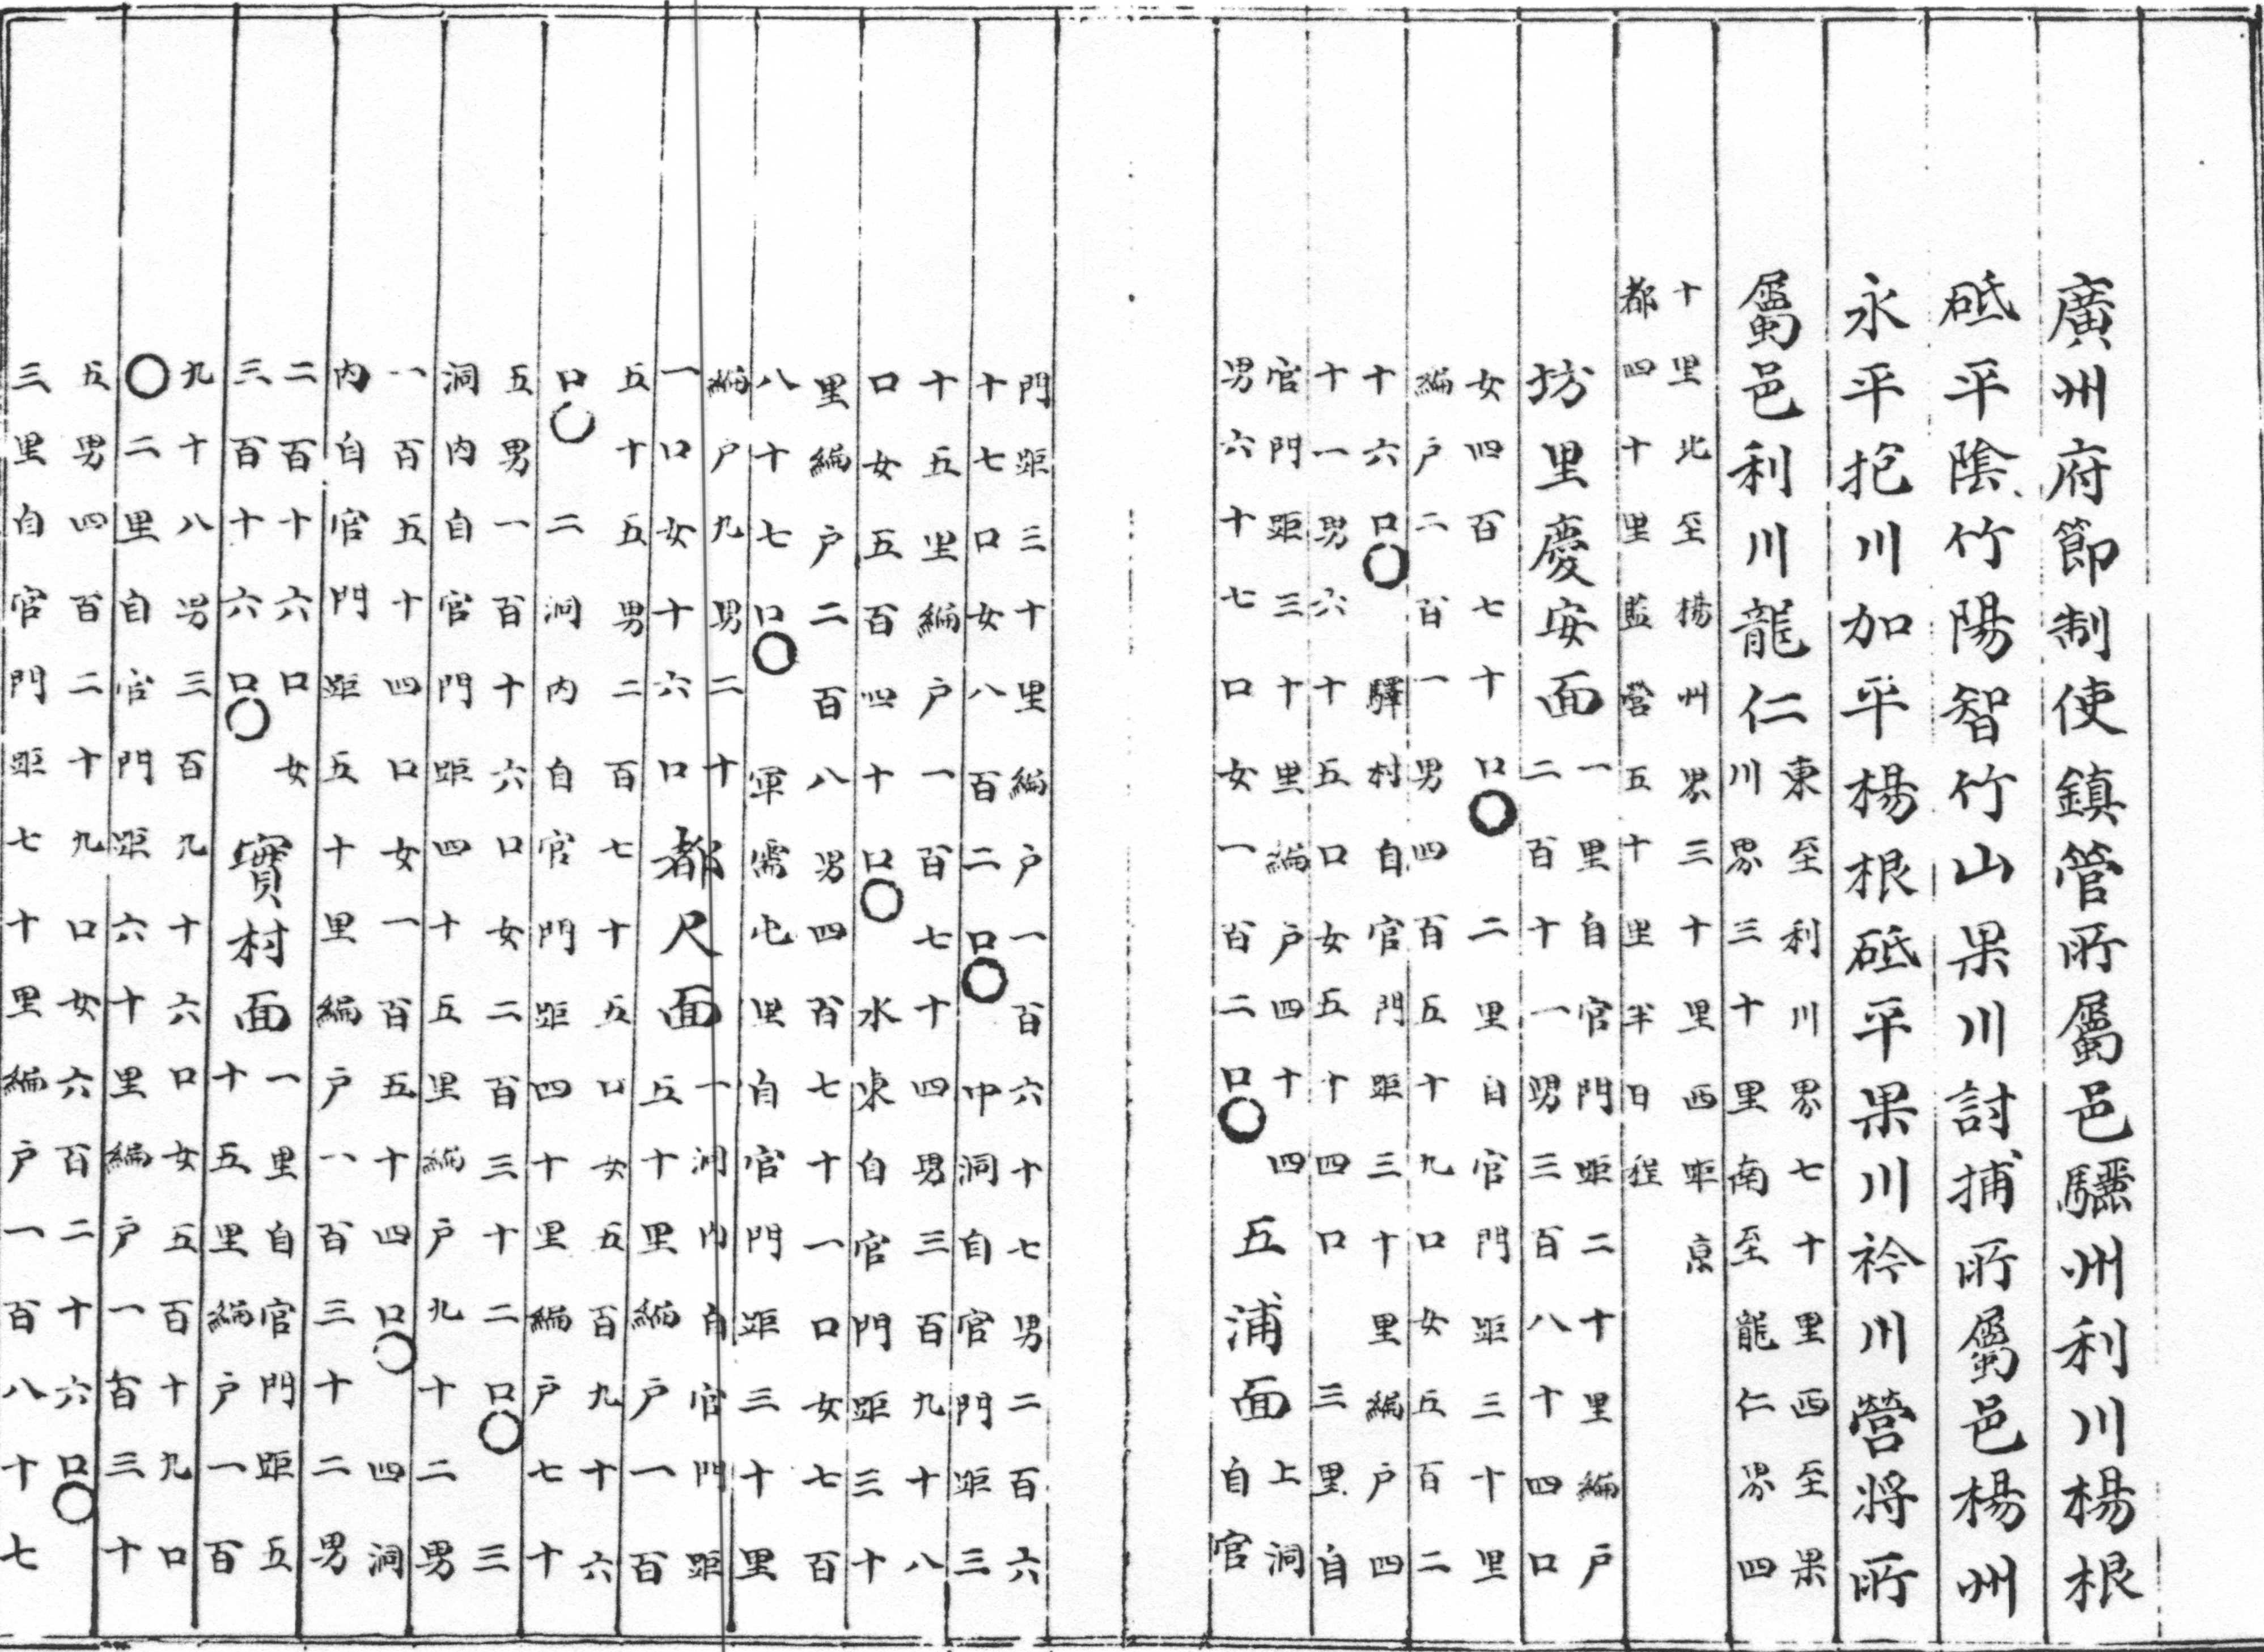 廣州府節制使鎮管所屬邑驪州利川楊根
砥平陰竹陽智竹山果川討捕所屬邑楊州
永平抱川加平楊根砥平果川衿川營將所
屬邑利川龍仁
東至利川界七十里西至果
川界三十里南至龍仁界四
十里北至楊州界三十里西距京
都四十里監營五十里半日程
坊里慶安面
一里自官門距二十里編戶
二百十一男三百八十四口
女四百七十口〇二里自官門距三十里
編戶二百一男四百五十九口女五百二
十六口〇驛村自官門距三十里編戶四
十一男六十五口女五十四口三里自
官門距三十里編戶四十四
男六十七口女一百二口〇
五浦面
上洞
自官
門距三十里編戶一百六十七男二百六
十七口女八百二口〇中洞自官門距三
十五里編戶一百七十四男三百九十八
口女五百四十口〇水東自官門距三十
里編戶二百八男四百七十一口女七百
八十七口〇軍儒屯里自官門距三十里
編戶九男二十
一口女十六口
都尺面
一洞內自官門距
五十里編戶一百
五十五男二百七十五口女五百九十六
口〇二洞內自官門距四十里編戶七十
五男一百十六口女二百三十二口〇三
洞內自官門距四十五里編戶九十二男
一百五十四口女一百五十四口〇四洞
內自官門距五十里編戶一百三十二男
二百十六口女
三百十六口〇
實村面
一里自官門距五
十五里編戶一百
九十八男三百九十六口女五百十九口
〇二里自官門距六十里編戶一百三十
五男四百二十九口女六百二十六口〇
三里自官門距七十里編戶一百八十七